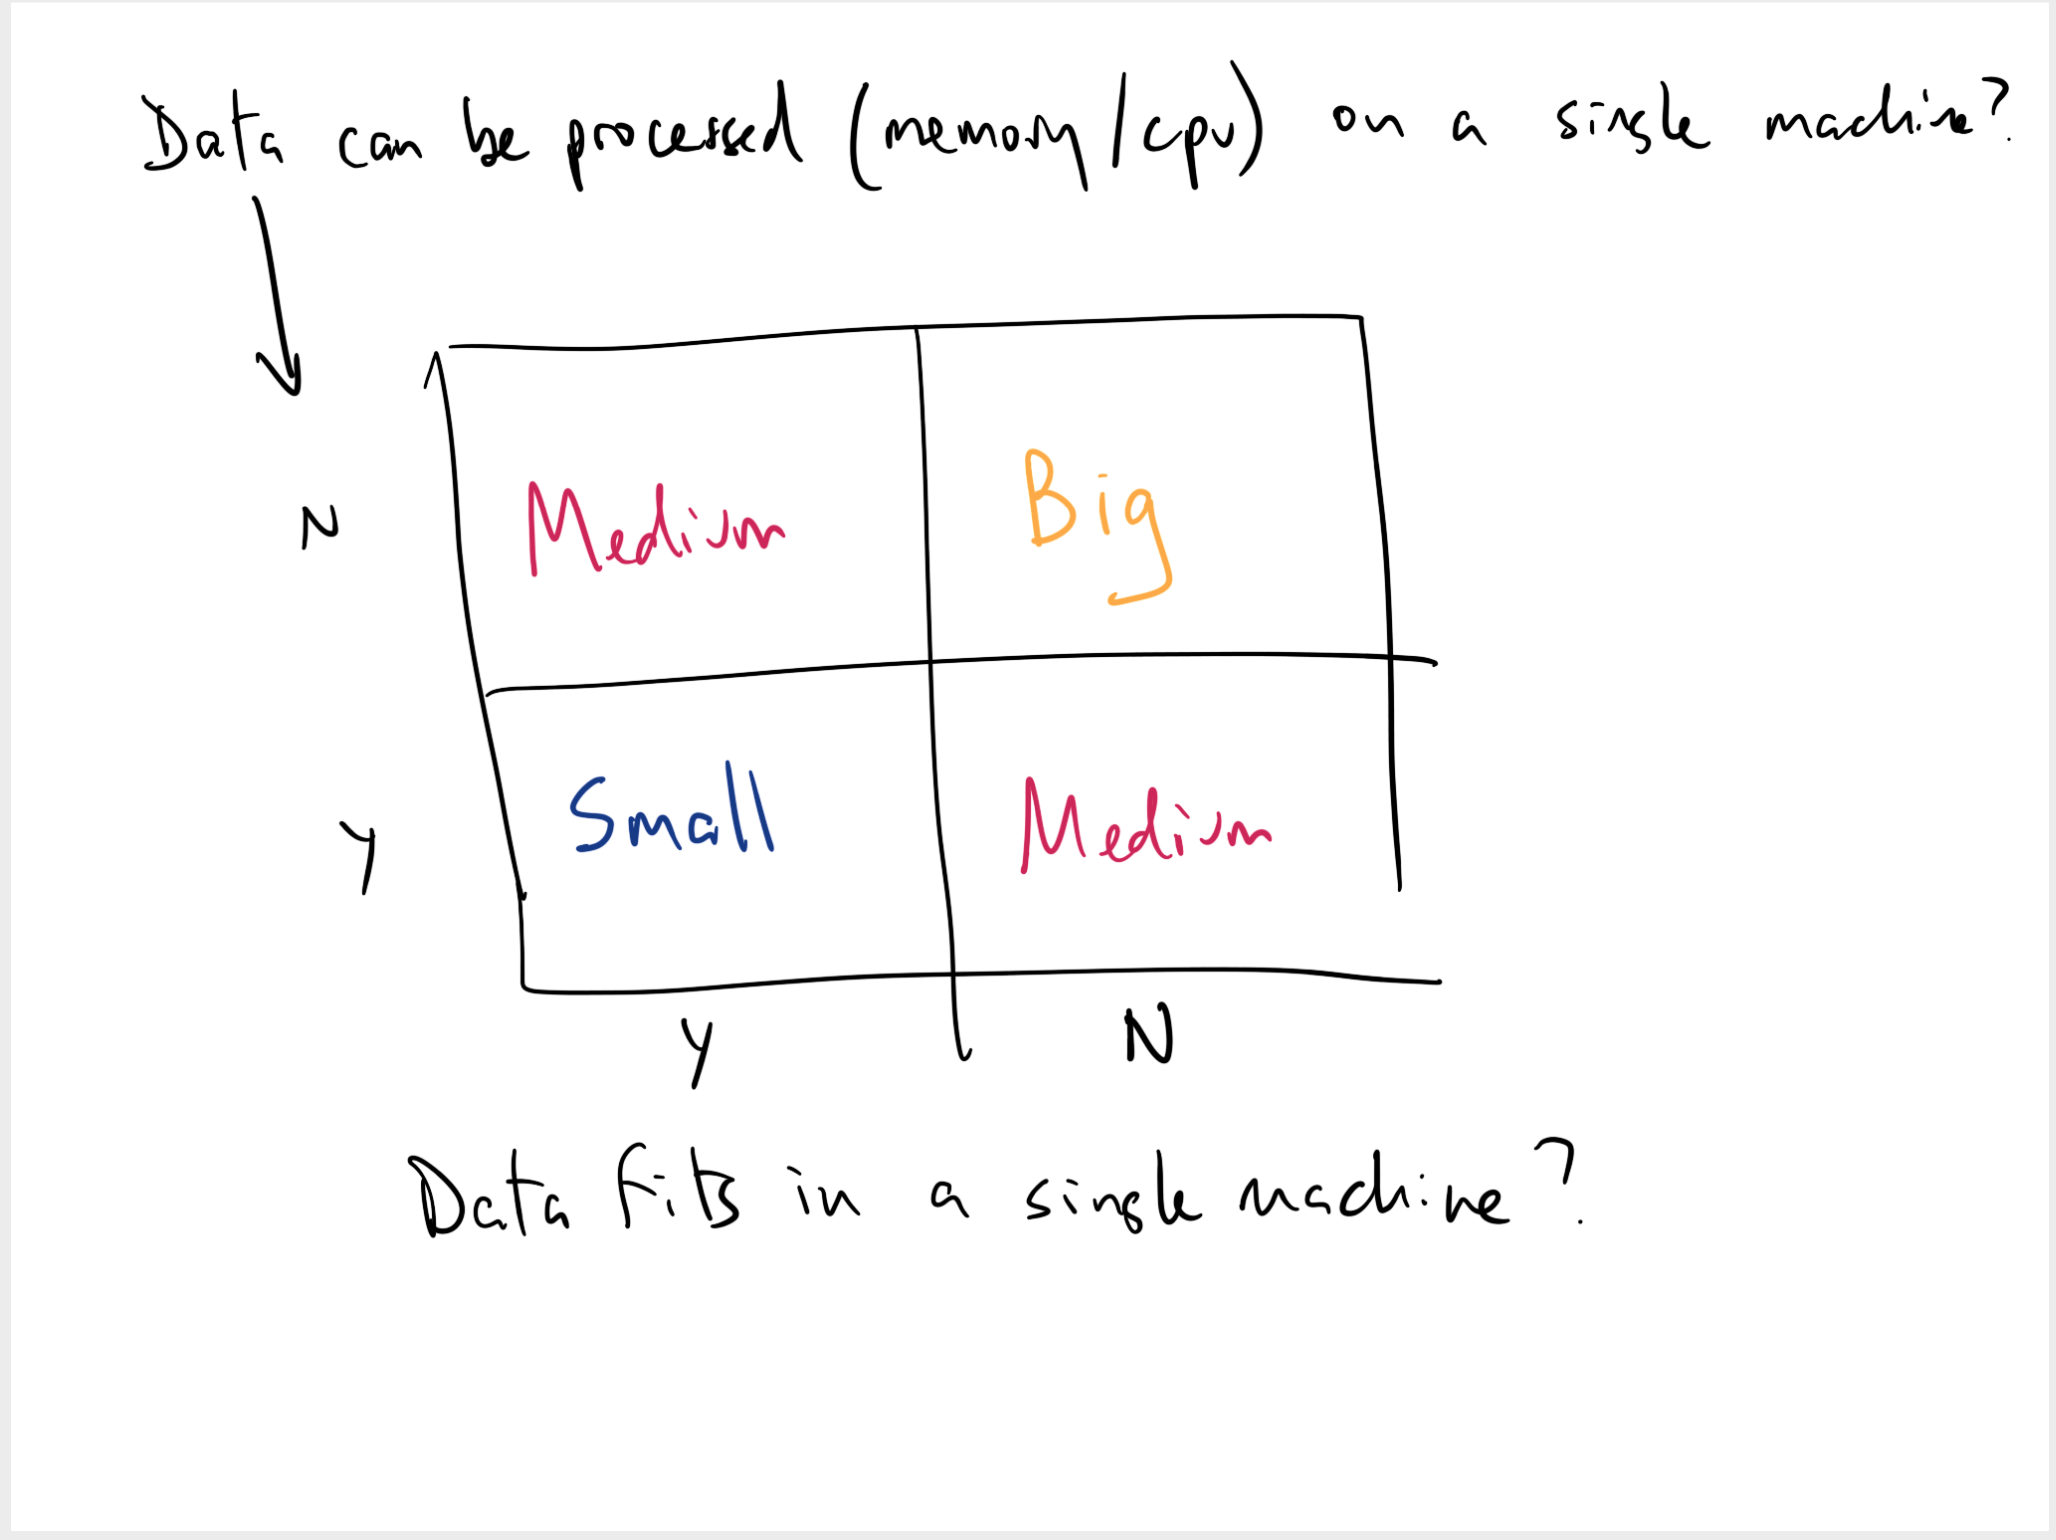 Data can be processed (memory/cpu) on a single machine?
N
Medium
Big
Y
Small
Medium
Y
N
Data fits in a single machine?